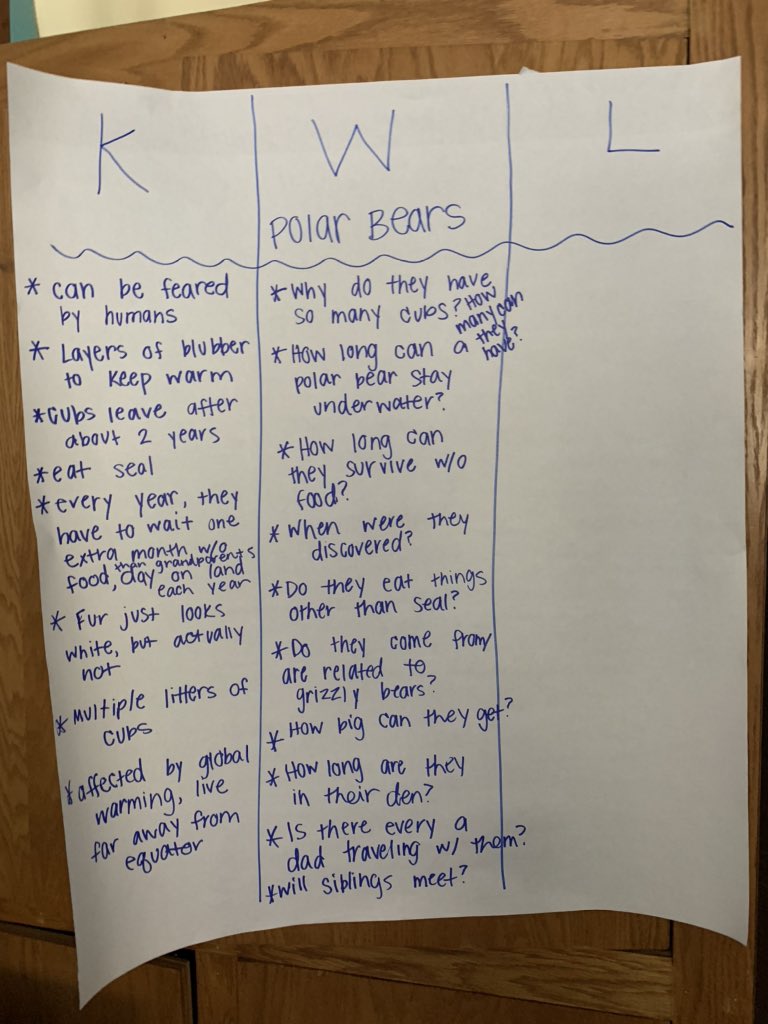 K
W
L
POlar Bears
* can be feared
by humans
* Layers of blubber
to keep warm
* cubs leave after
about 2 years
* eat seal
* every year, they
have to wait one
extra month w/o
than grandparents
food, day on land
each year
* Fur just looks
white, but actually
not
* Multiple litters of
cubs
* affected by global
warming, live
far away from
equator
* Why do they have
so many cubs? How
many can
they
have?
* How long can a
polar bear stay
underwater?
* How long can
they survive w/o
food?
* When were they
discovered?
* Do they eat things
other than seal?
* Do they come from/
are related to
grizzly bears?
* How big can they get?
* How long are they
in their den?
* Is there every a
dad traveling w/ them?
* will siblings meet?